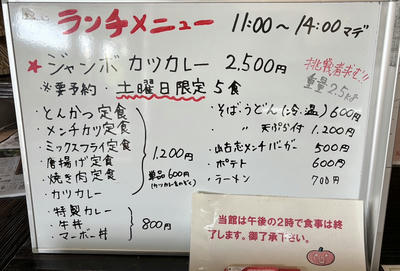 ランチメニュー 11:00～14:00マデ
★ジャンボカツカレー 2,500円 挑戦者求む!!
※要予約・土曜日限定5食 重量2.5kg
・とんかつ定食
・メンチカツ定食
・ミックスフライ定食
・唐揚げ定食
・焼き肉定食
・カツカレー
1,200円
単品600円
(カツカレーをのぞく)
・特製カレー
・牛丼
・マーボー丼
800円
・そば・うどん(冷・温) 600円
・〃 天ぷら付 1,200円
・山古志メンチバーガー 500円
・ポテト 600円
・ラーメン 700円
当館は午後の2時で食事は終
了します。御了承下さい。